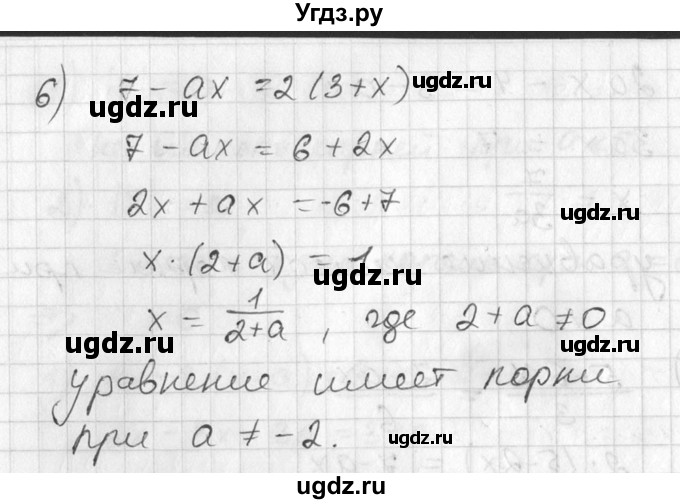 Угдз.ру
6) 7 - ax = 2 (3 + x) ugdz.ru
ugdz.ru
7 - ax = 6 + 2x
2x + ax = -6 + 7 ugdz.ru
x · (2 + a) = 1
ugdz.ru
x = 1/(2+a), где 2 + a ≠ 0
ugdz.ru ugdz.ru
уравнение имеет корни
при a ≠ -2. ugdz.ru
ugdz.ru